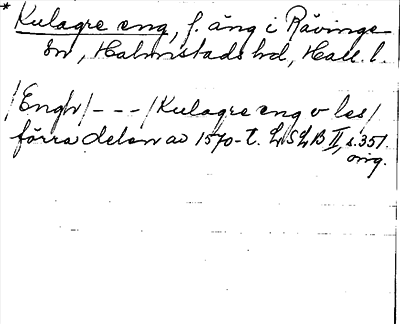 * Kulagre eng, f. äng i Rävinge
sn, Halmstads hd, Hall. l.
/Engh/ - - - /Kulagre eng v les/
förra delen av 1570-t. LSLB II, s. 351.
orig.